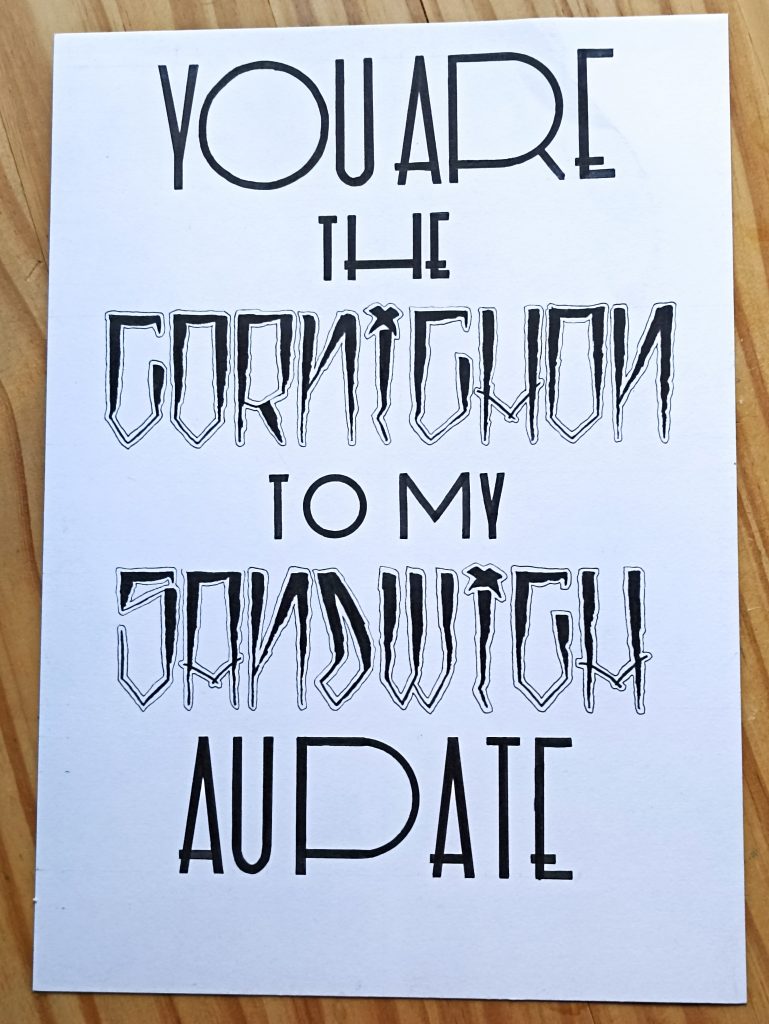 YOU ARE
THE
CORNICHON
TO MY
SANDWICH
AU PATE